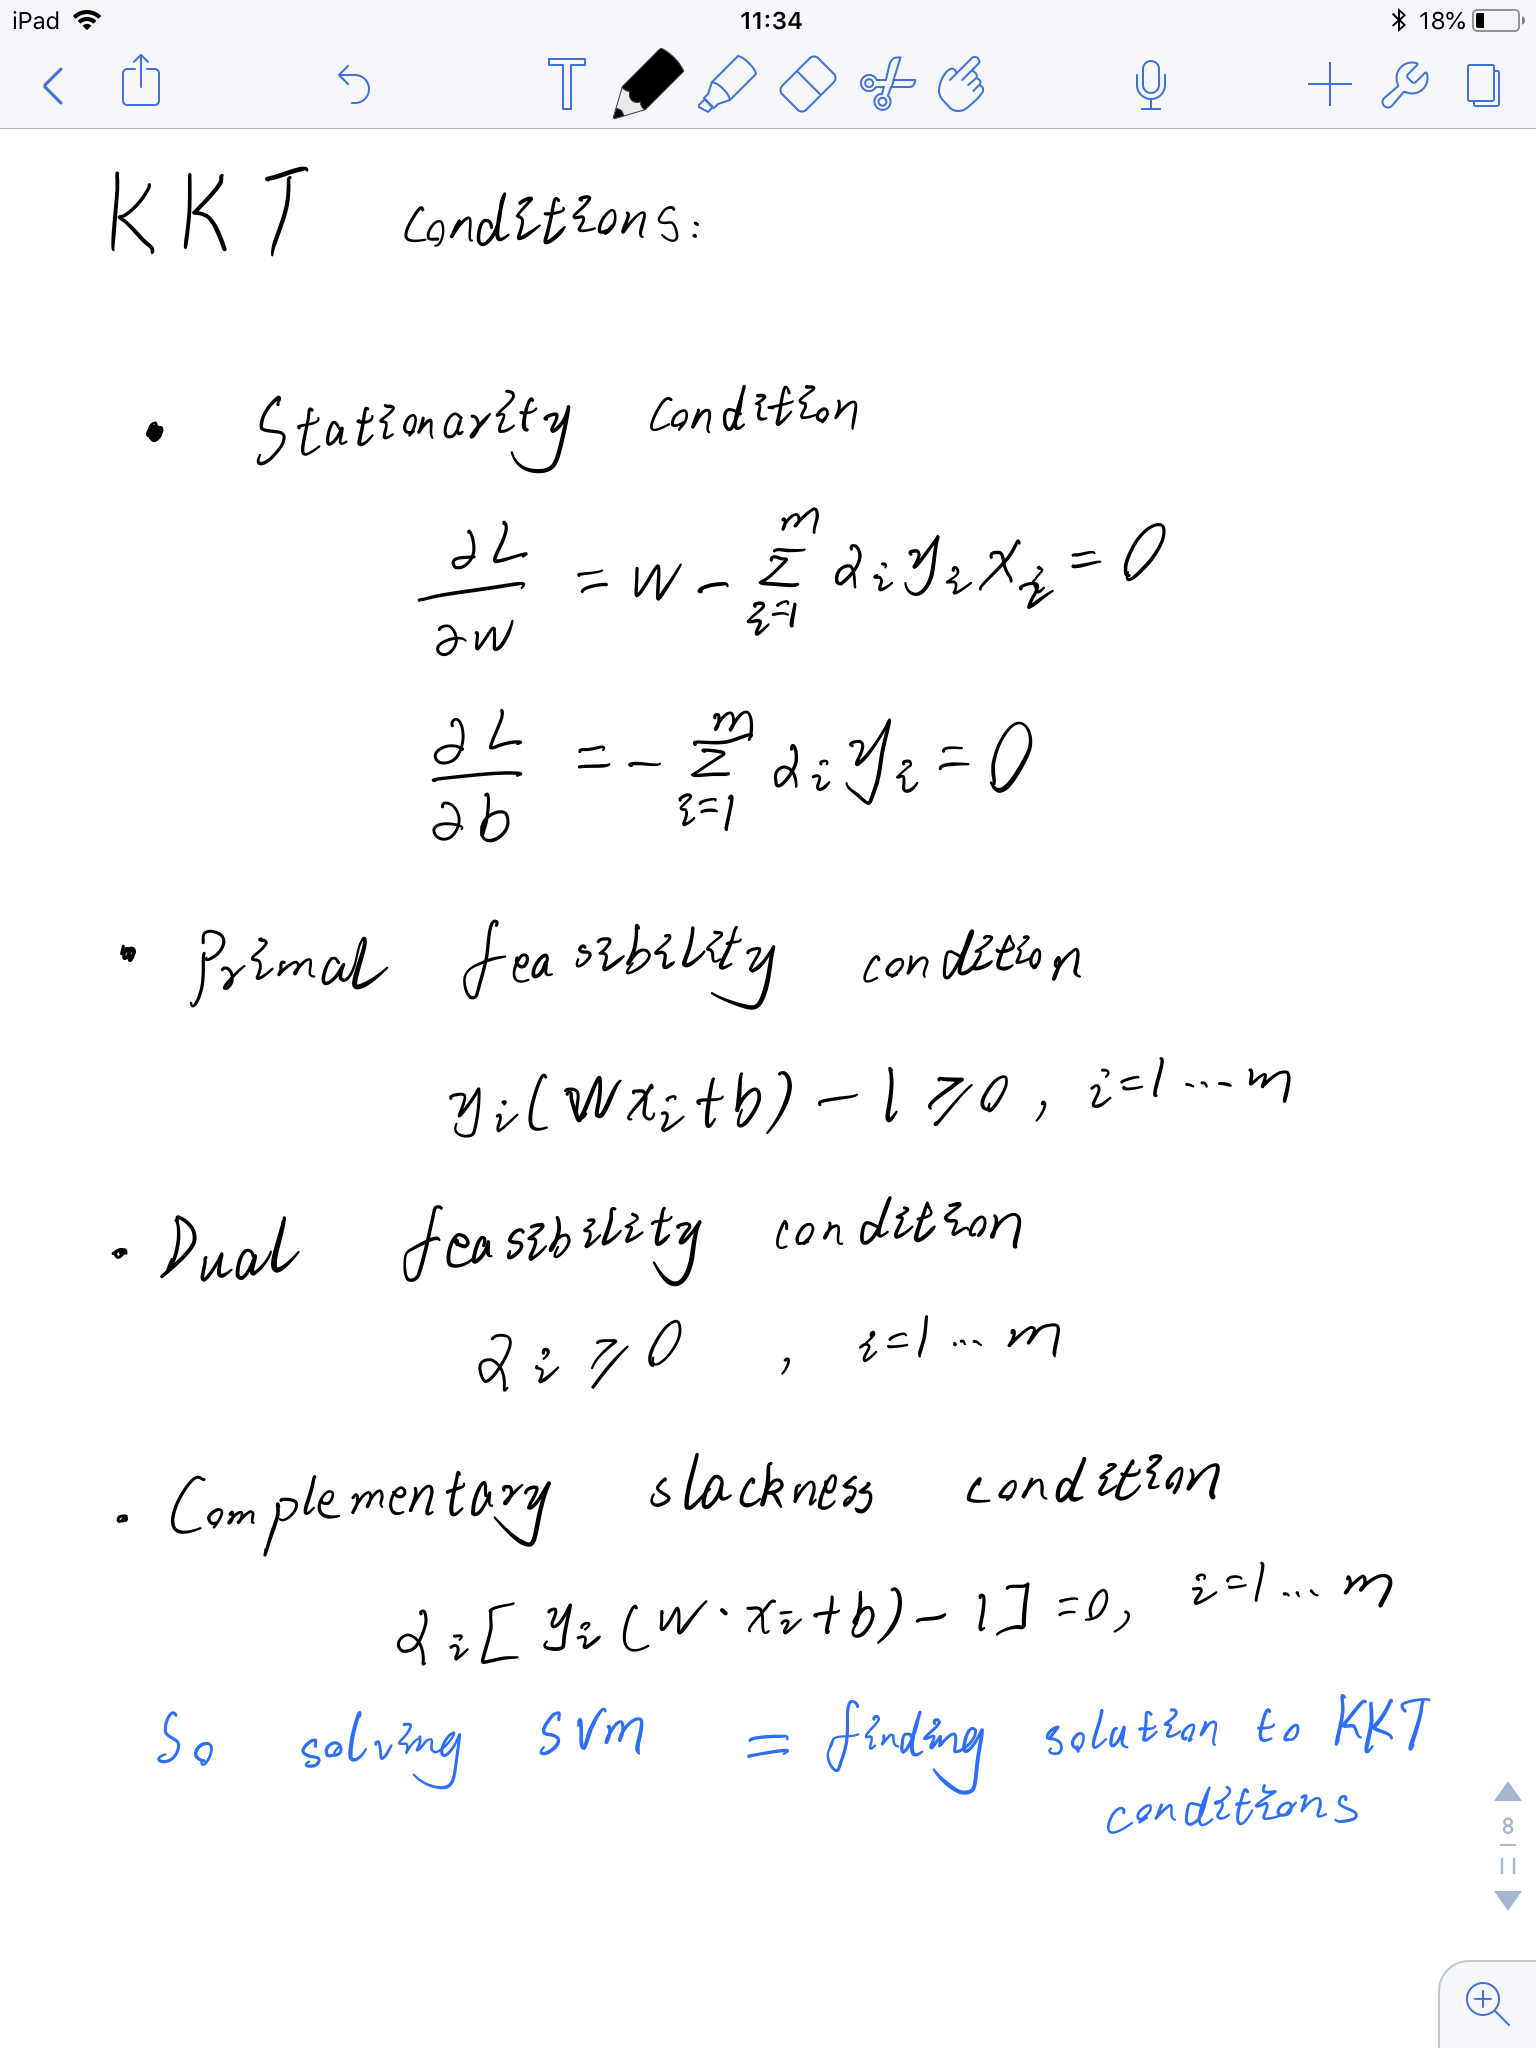 iPad 11:34 18%
KKT conditions:
• Stationarity condition
∂L/∂w = w - Σ_{i=1}^{m} α_i y_i x_i = 0
∂L/∂b = - Σ_{i=1}^{m} α_i y_i = 0
• Primal feasibility condition
y_i(W x_i + b) - 1 ⩾ 0, i=1 ... m
• Dual feasibility condition
α_i ⩾ 0 , i=1 ... m
• Complementary slackness condition
α_i[ y_i (w · x_i + b) - 1] = 0, i=1 ... m
So solving SVM = finding solution to KKT
conditions
8
11